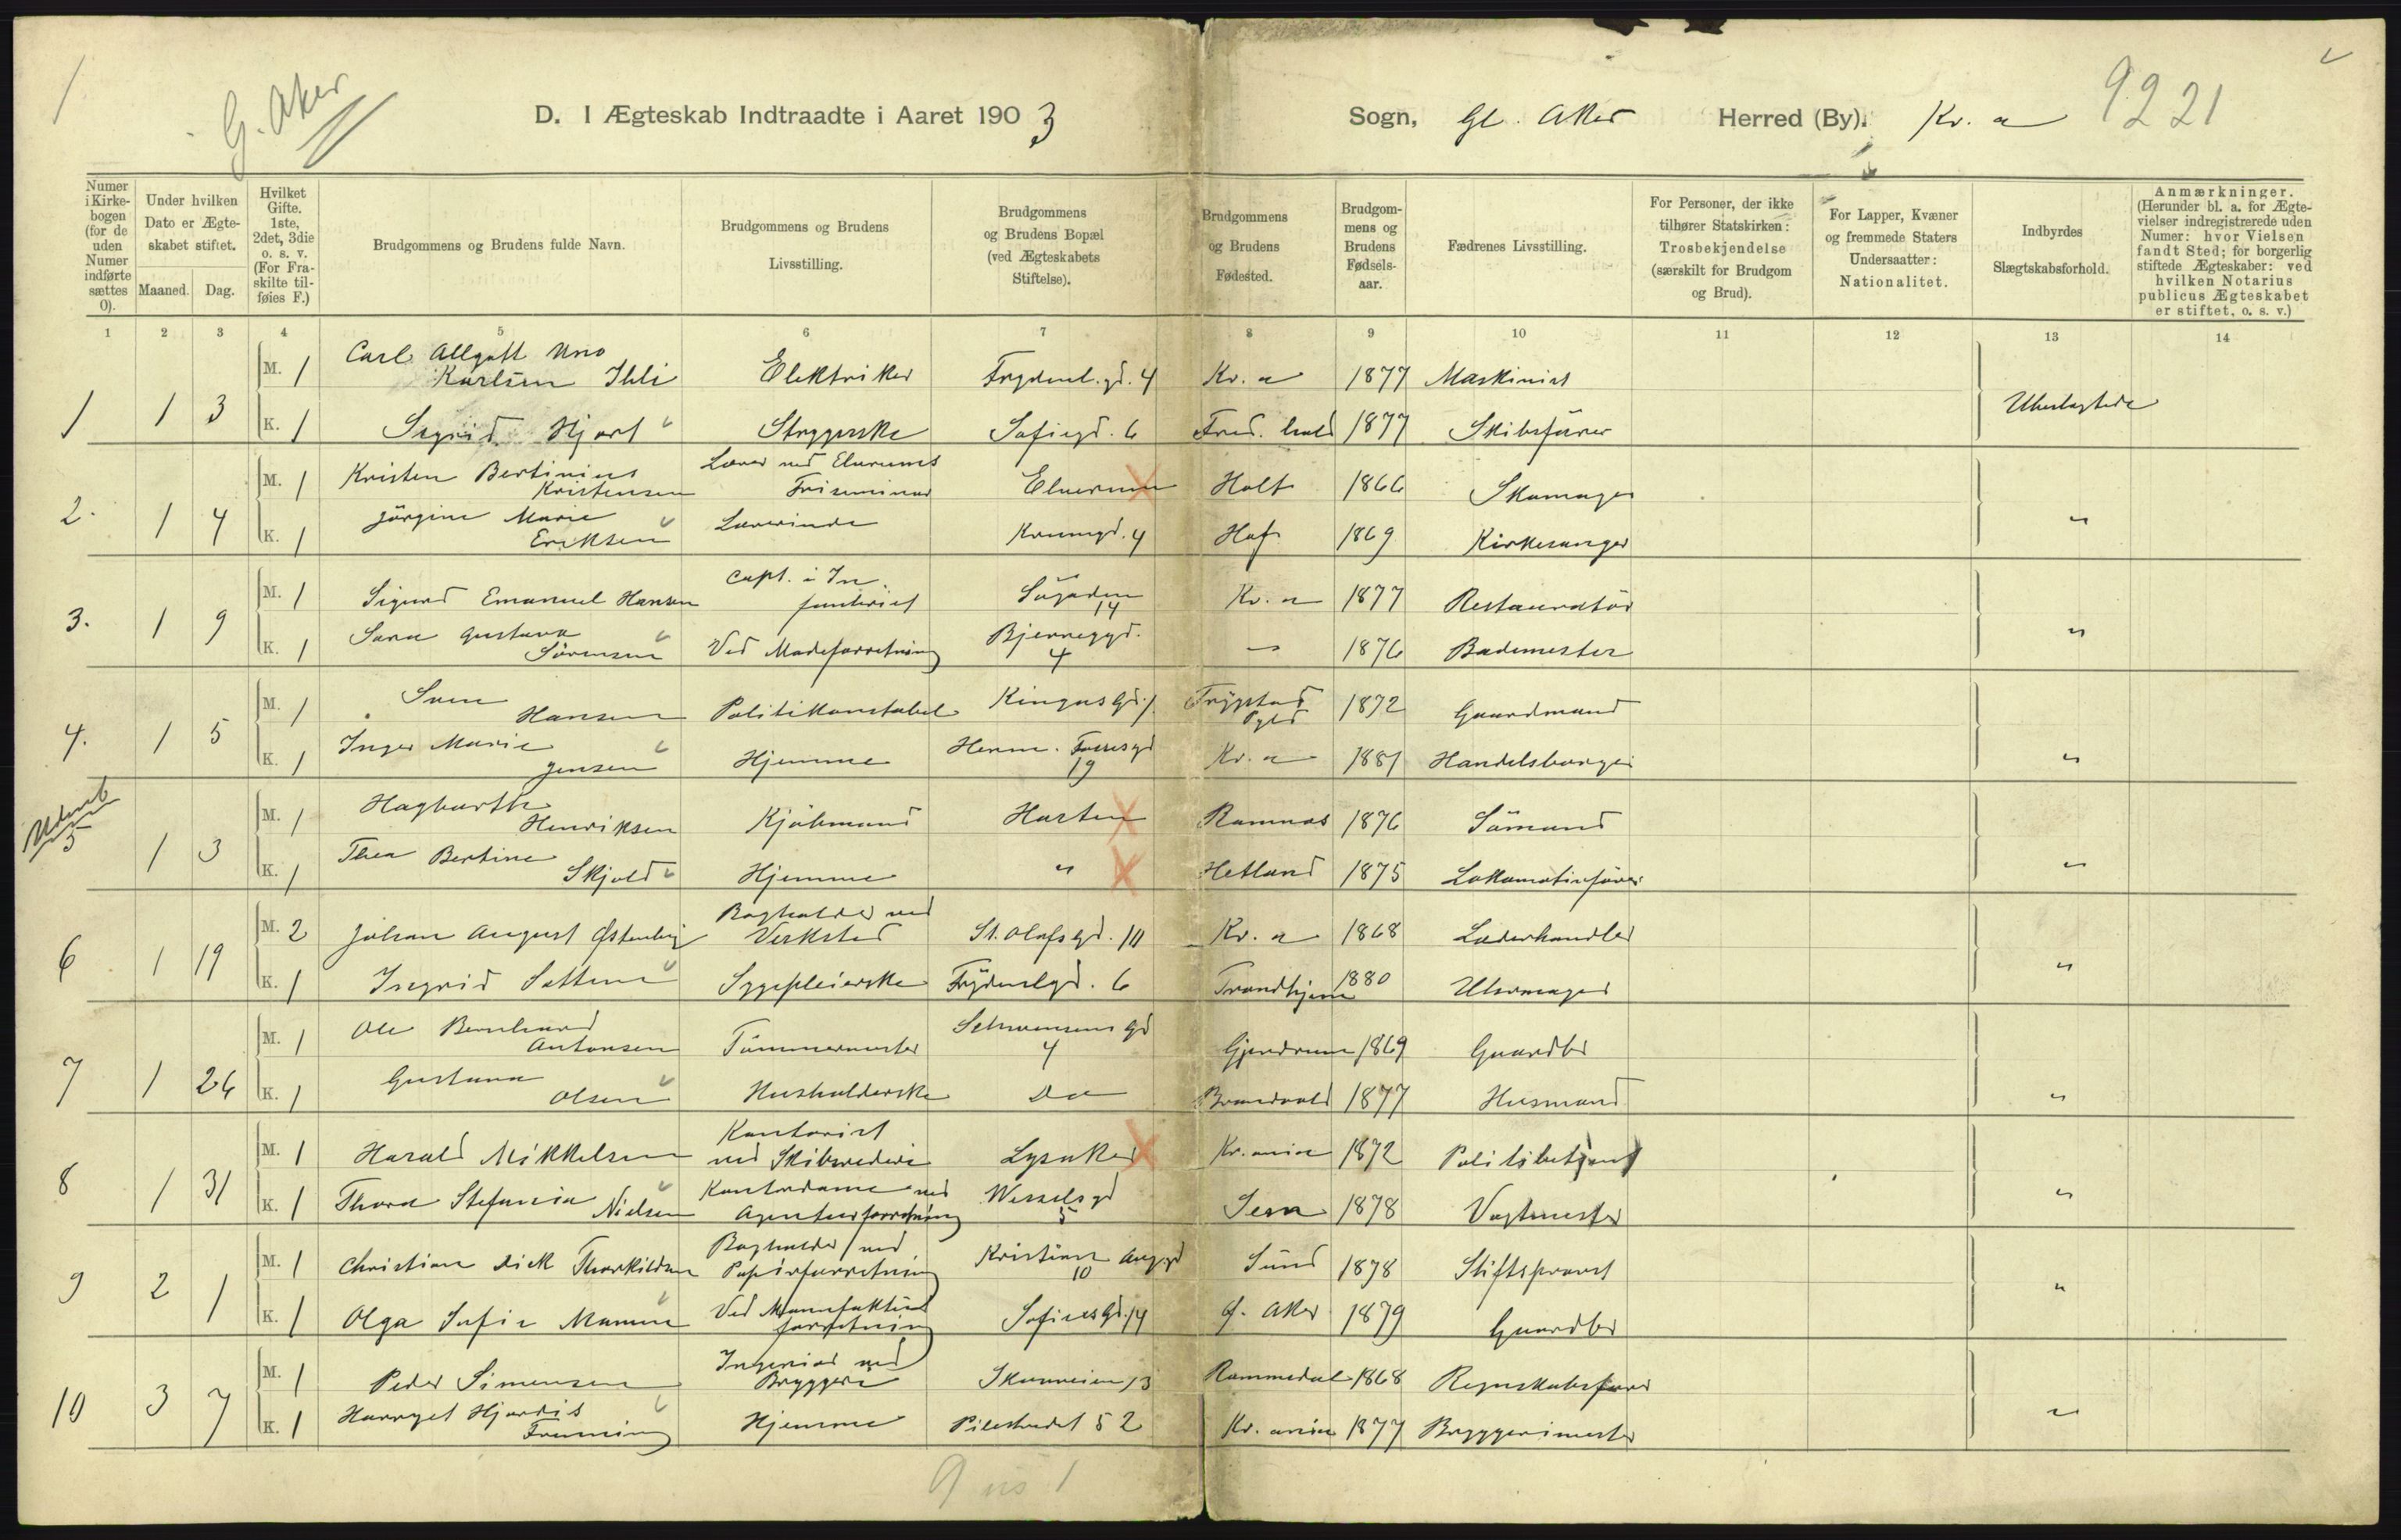 1
G. Aker
D. I Ægteskab Indtraadte i Aaret 1903
Sogn, Gl. Aker Herred (By). Kr. a
9221
Numer i Kirkebogen (for de uden Numer indførte sættes 0).
Under hvilken Dato er Ægteskabet stiftet.
Maaned. Dag.
Hvilket Gifte. 1ste, 2det, 3die o. s. v. (For Fraskilte tilføies F.)
Brudgommens og Brudens fulde Navn.
Brudgommens og Brudens Livsstilling.
Brudgommens og Brudens Bopæl (ved Ægteskabets Stiftelse).
Brudgommens og Brudens Fødested.
Brudgommens og Brudens Fødselsaar.
Fædrenes Livsstilling.
For Personer, der ikke tilhører Statskirken: Trosbekjendelse (særskilt for Brudgom og Brud).
For Lapper, Kvæner og fremmede Staters Undersaatter: Nationalitet.
Indbyrdes Slægtskabsforhold.
Anmærkninger. (Herunder bl. a. for Ægtevielser indregistrerede uden Numer: hvor Vielsen fandt Sted; for borgerlig stiftede Ægteskaber: ved hvilken Notarius publicus Ægteskabet er stiftet, o. s. v.)
1 2 3 4 5 6 7 8 9 10 11 12 13 14
1 1 3
M. 1 Carl Allgott Uno Karlsen Ihli Elektriker Frydenl.gd. 4 Kr. a 1877 Maskinist
K. 1 Sigrid Hjort Strygerske Sofiegd. 6 Fred. hald 1877 Skibsfører Ubeslægtede
2. 1 4
M. 1 Kristen Bertinius Kristensen Lærer ved Elverums Friseminar Elverum Holt 1866 Skomager
K. 1 Jörgine Marie Eriksen Lærerinde 4 Hof 1869 Kirkesanger "
3. 1 9
M. 1 Sigurd Emanuel Hansen Capt. i Infanteriet Sögaden 14 Kr. a 1877 Restauratör
K. 1 Sara Gustava Sörensen Ved Modeforretning Bjerregd. 4 " 1876 Bademester "
4. 1 5
M. 1 Sven Hansen Politikonstabel Kingosgd. 1 Trygstad 1872 Gaardmand
K. 1 Inger Marie Jensen Hjemme Herm. Fossgd 19 Kr. a 1881 Handelsborger "
5 1 3
M. 1 Hagbarth Henriksen Kjöbmand Horten Ramnes 1876 Sömand
K. 1 Thea Bertine Skjold Hjemme " Hetland 1875 Lokomotivförer "
6 1 19
M. 2 Johan August Østenberg Bogholder ved Verksted St. Olafsgd. 10 Kr. a 1868 Læderhandler
K. 1 Ingrid Settem Sygepleierske Frydenlgd. 6 Trondhjem 1880 Uhrmager "
7 1 26
M. 1 Ole Bernhard Antonsen Tömmermester Schwensens Gd 4 Gjerdrum 1869 Gaardbr
K. 1 Gustava Olsen Husholderske Do Brandvold 1877 Husmand "
8 1 31
M. 1 Harald Mikkelsen Kontorist ved Skibsrederi Lysaker Kr. ania 1872 Politibetjent
K. 1 Thora Stefania Nielsen Kontordame ved Agenturforretning Wesselsgd 5 1878 Vagtmester "
9 2 1
M. 1 Christian Dick Thorkildsen Bogholder ved Papirforretning Kristian Aug.gd 10 Sund 1878 Stiftsprovst
K. 1 Olga Sofie Mamen Ved Manufakturforretning Sofiesgd. 14 G. Aker 1879 Gaardbr "
10 3 7
M. 1 Peder Simensen Ingeniør ved Bryggeri Skovveien 13 Rommedal 1868 Regnskabsfører
K. 1 Harryet Hjørdis Hjemme Pilestrædet 52 Kr. ania 1877 Bryggerimester "